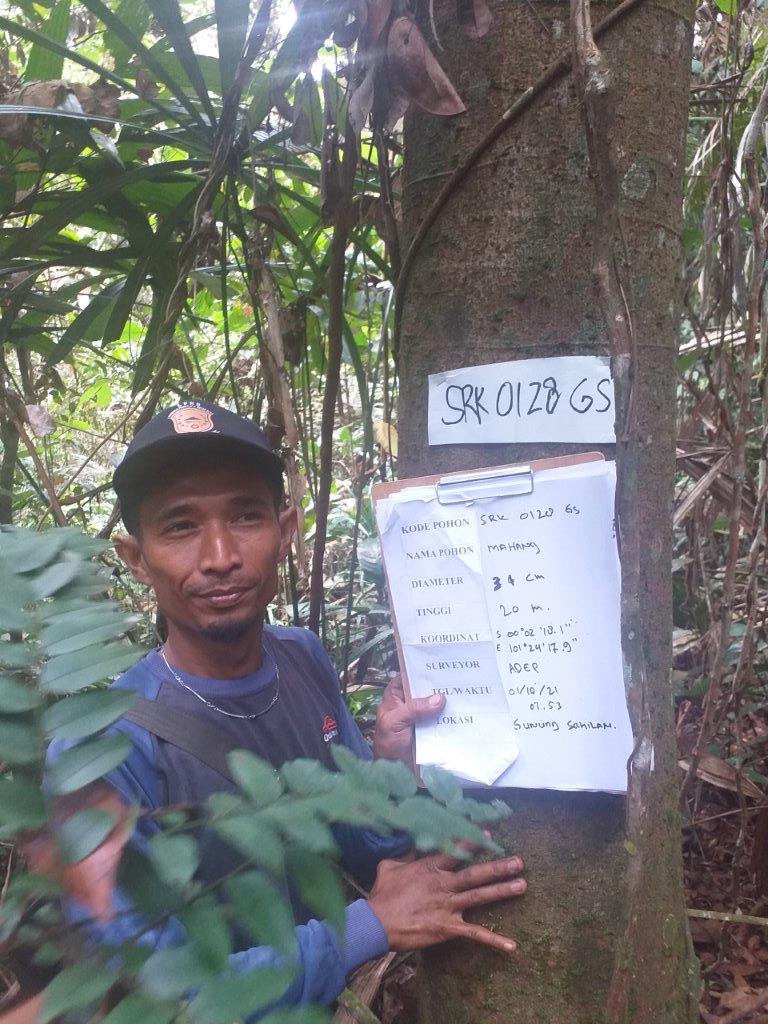 SRK 0128 GS
KODE POHON SRK 0128 GS
NAMA POHON MAHANG
DIAMETER 34 cm
TINGGI 20 m.
KOORDINAT S 00°02'18.1"
E 101°24'17.9"
SURVEYOR ADEP
TGL/WAKTU 01/10/21
07.53
LOKASI GUNUNG SAHILAN.